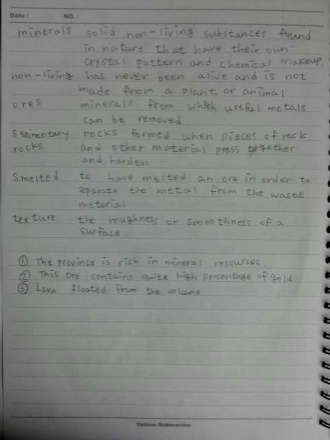 Date : NO. :
minerals solid non-living substances found
in nature that have their own
crystal pattern and chemical makeup
non-living has never been alive and is not
made from a plant or animal
ores minerals from which useful metals
can be removed
Sedimentary rocks formed when pieces of rock
rocks and other material press together
and harden
Smelted to have melted an ore in order to
separate the metal from the waste
material
texture the roughness or smoothness of a
surface
① The province is rich in mineral resources
② This ore contains quite high percentage of gold
③ Lava floated from the volcano
Yellow Submarine